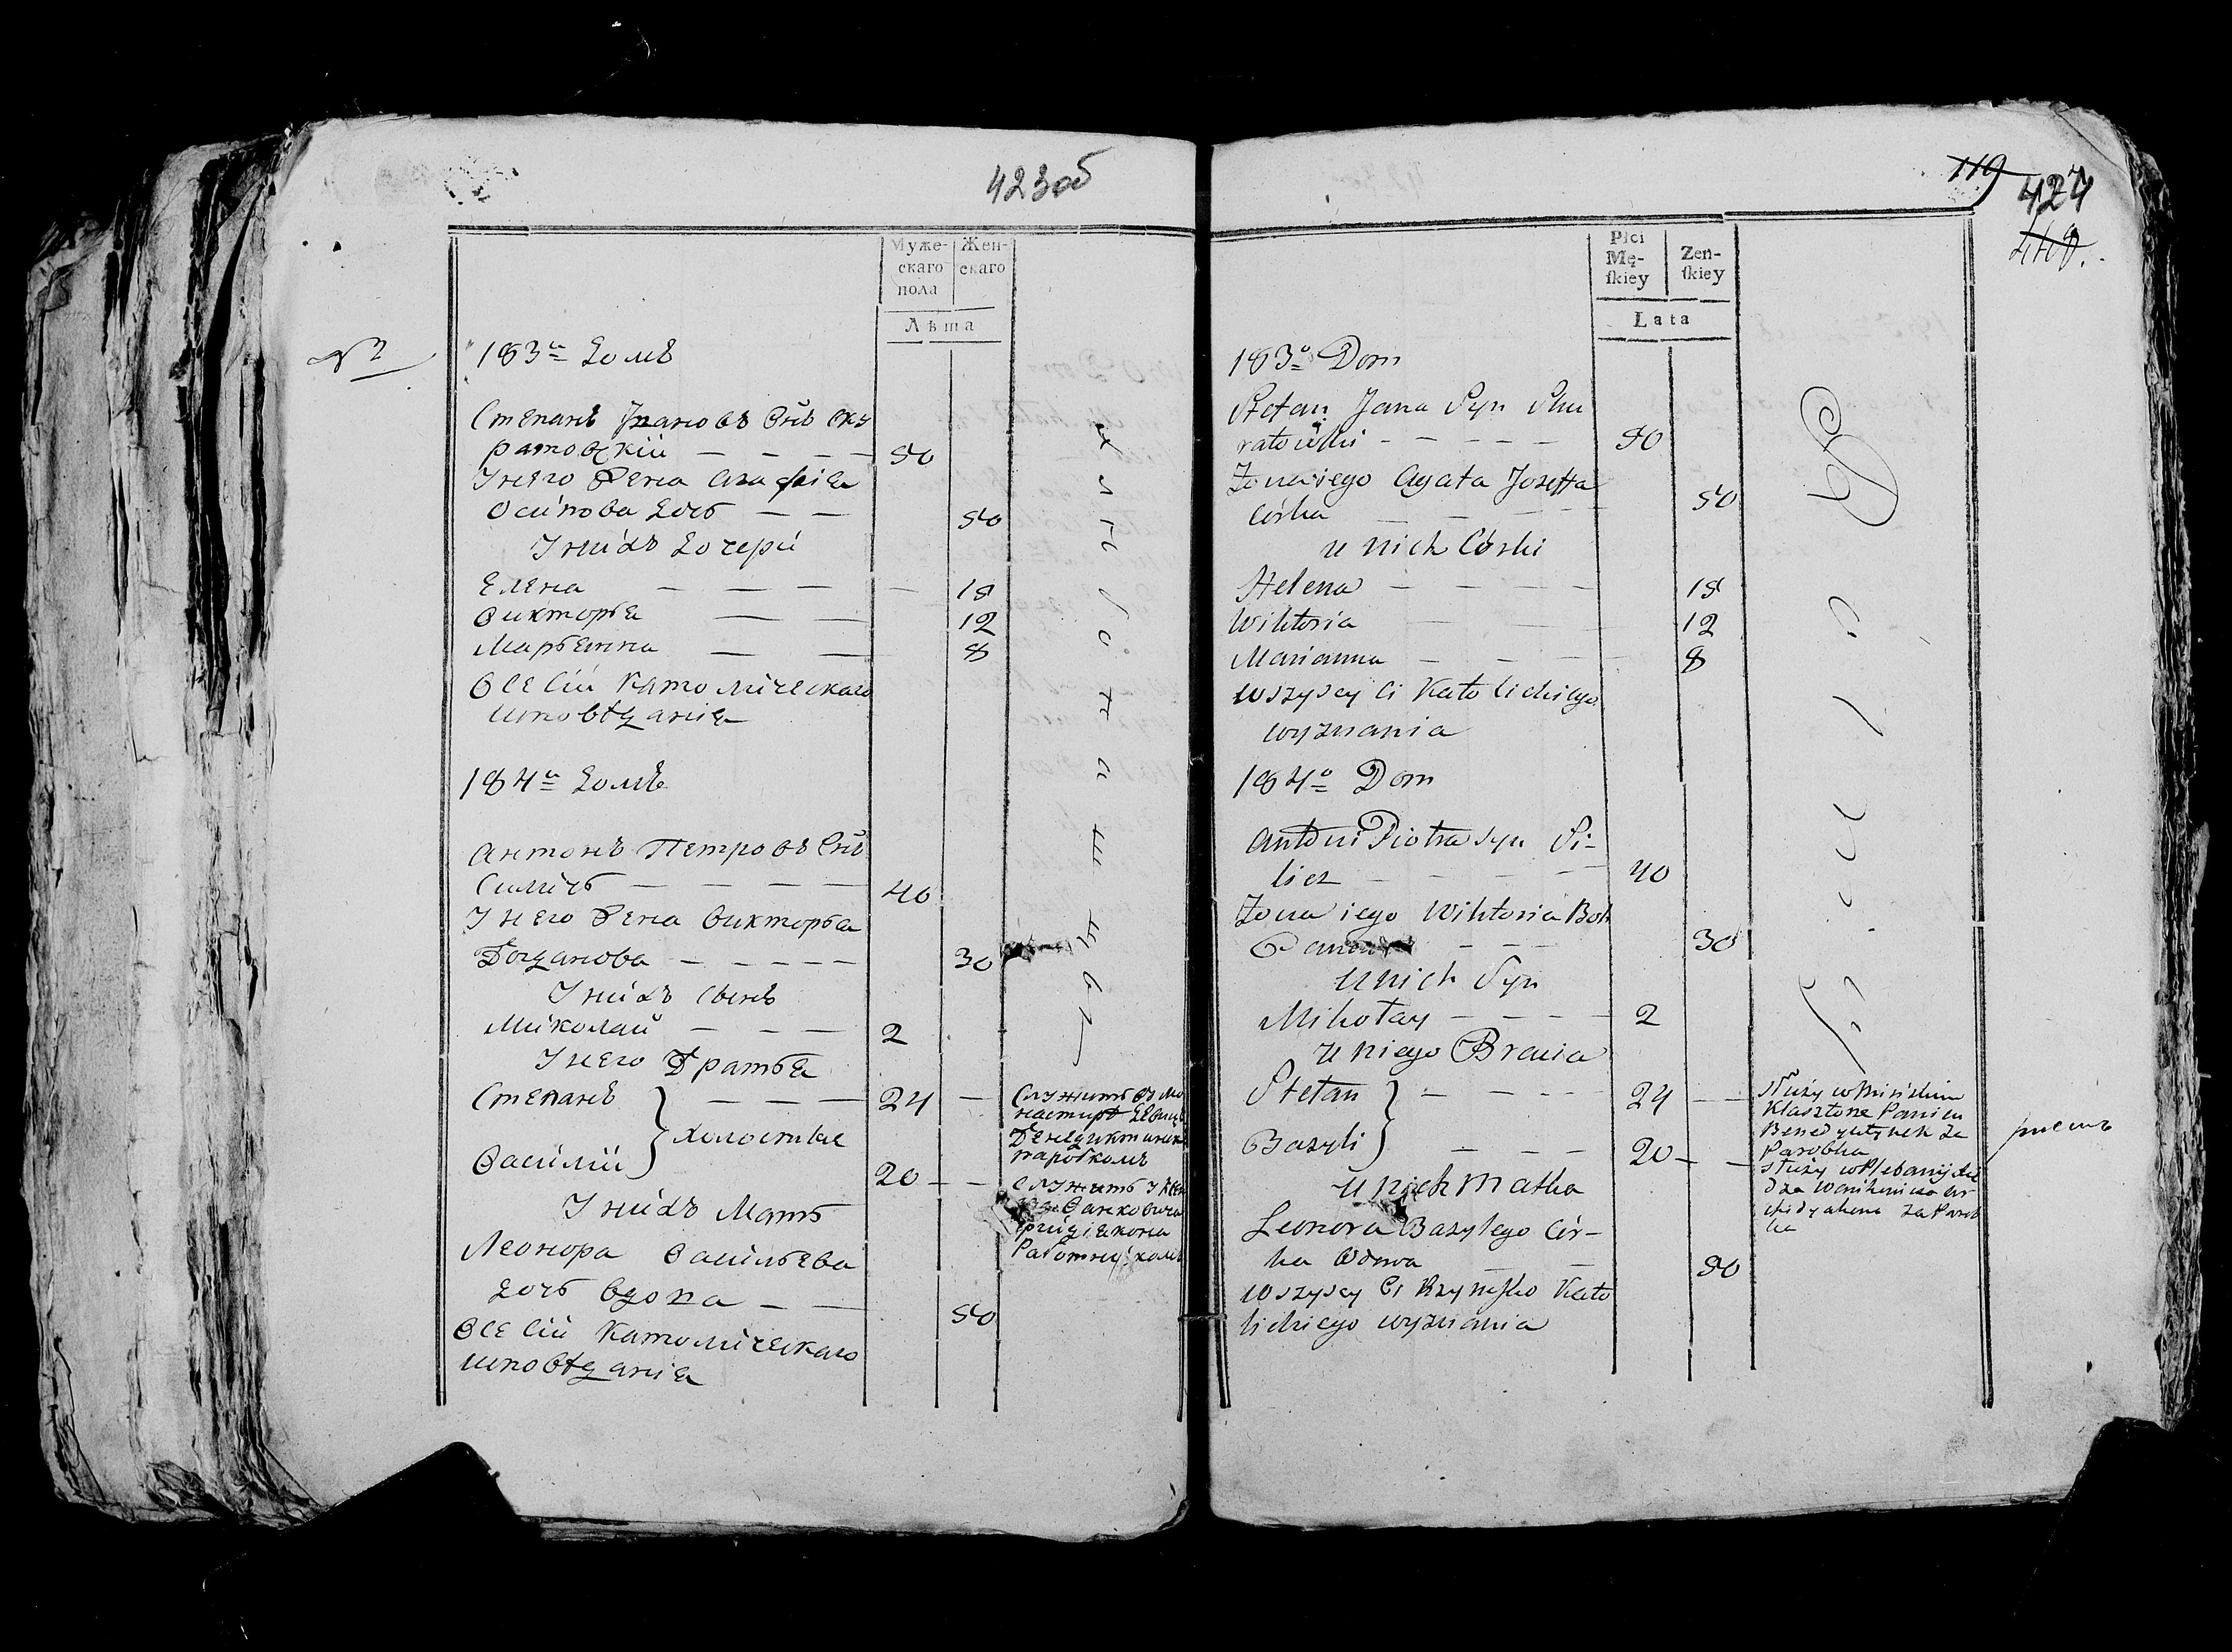 423об
Муже-
скаго
пола
Жен-
скаго
Лѣта
183й домъ
Степанъ Яновъ Снъ Ску
ратовскій 50
У него Жена Агафія
Осипова дочь 50
У нихъ дочери
Елена 18
Викторья 12
Марьянна 8
Всѣ сіи Католическаго
исповѣданія
184й домъ
Антонъ Петровъ Снъ
Силичь 40
У него Жена Викторья
Богданова 30
У нихъ сынъ
Миколай 2
У него Братья
Степанъ 24
холостые
Василій 20
У нихъ Мать
Леонора Васильева
дочь вдова 50
Всѣ сіи Католическаго
исповѣданія
Служитъ въ Мо
настирѣ
паробкомъ
служитъ у
119
424
Płci
Mę-
ſkiey
Żeń-
ſkiey
Lata
183o Dom
Stefan Jana Syn Sku
ratowski 50
Żona iego Agata Joseffa
Córka 50
u nich Córki
Helena 18
Wiktoria 12
Marianna 8
wszyscy ci Katolickiego
wyznania
184o Dom
Antoni Piotra syn Si-
licz 40
Żona iego Wiktoria Boh
30
u nich Syn
Mikołay 2
u niego Bracia
Stefan 24
Bazyli 20
u nich Matka
Leonora Bazylego Cór-
ka Wdowa 50
wszyscy Ci Rzymsko Kato
lickiego wyznania
Służy w Mińskim
Klasztorze Panien
Benedyktynek za
Parobka
służy w Plebanij
za Parob
ka